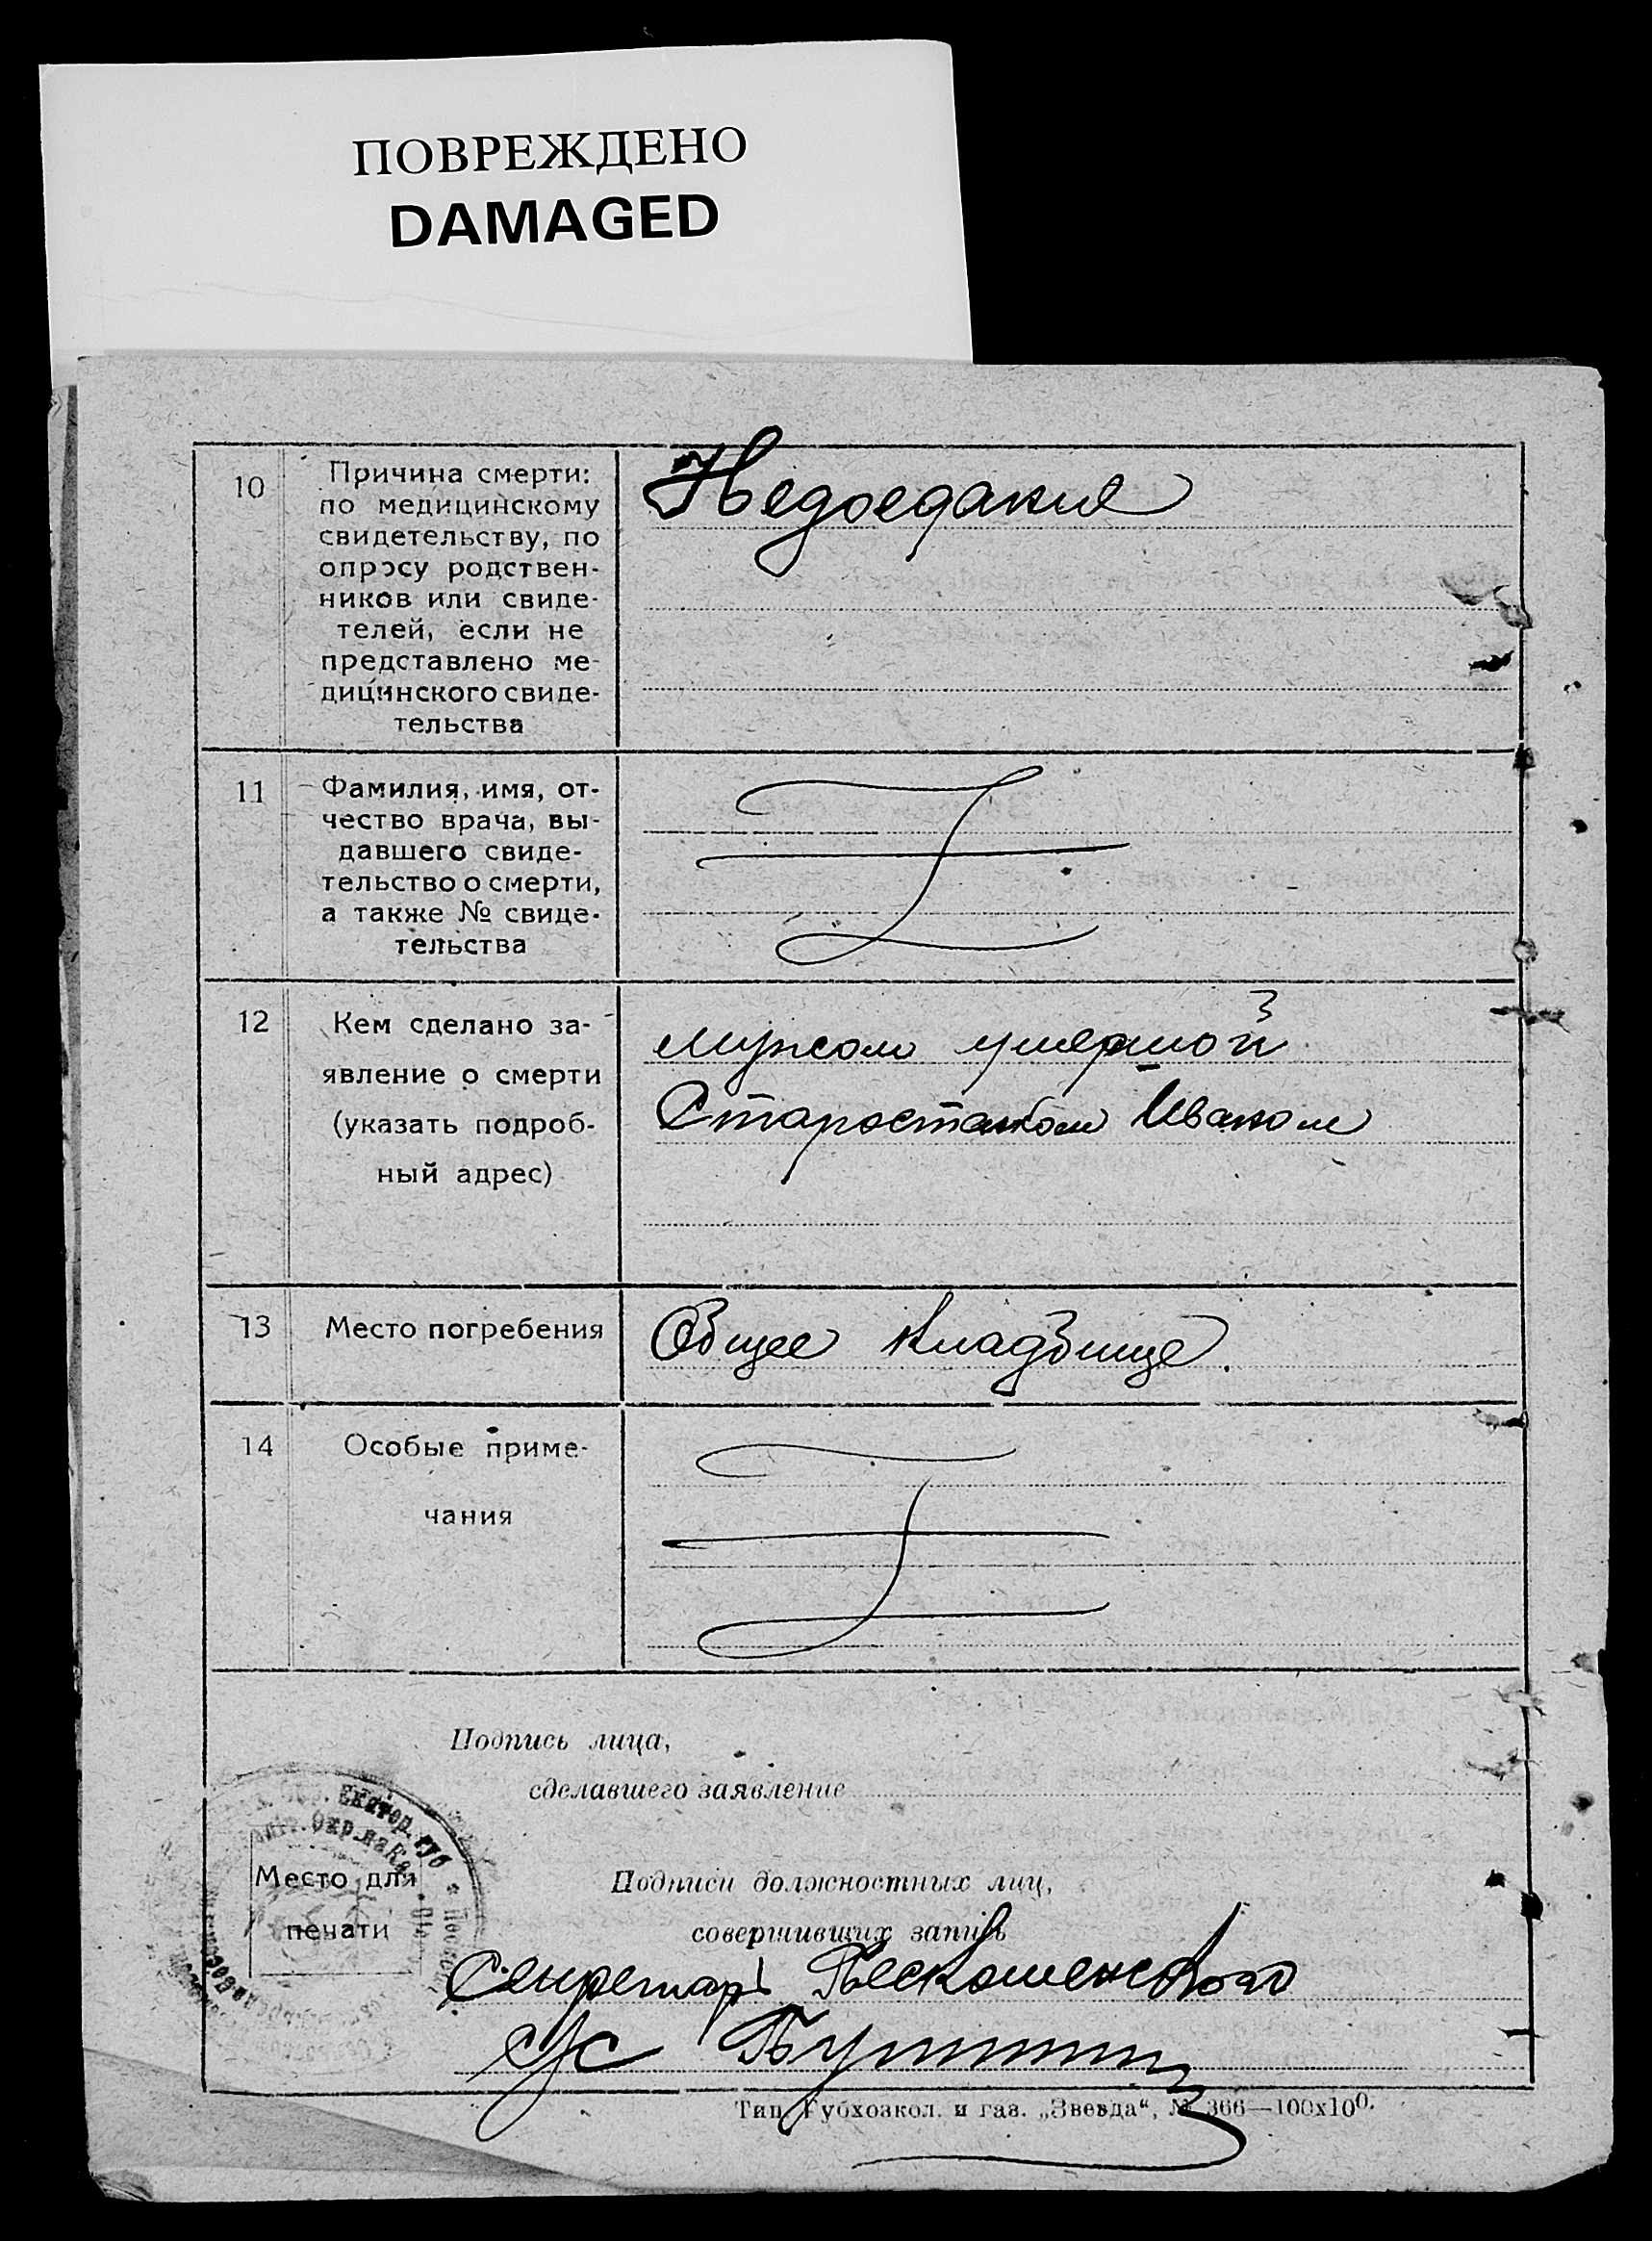 ПОВРЕЖДЕНО
DAMAGED
10
Причина смерти:
по медицинскому
свидетельству, по
опросу родствен-
ников или свиде-
телей, если не
представлено ме-
дицинского свиде-
тельства
Недоедания
11
Фамилия, имя, от-
чество врача, вы-
давшего свиде-
тельство о смерти,
а также № свиде-
тельства
12
Кем сделано за-
явление о смерти
(указать подроб-
ный адрес)
мужом умершой
Иваном
13
Место погребения
Общее кладбище.
14
Особые приме-
чания
Подпись лица,
сделавшего заявление
Екатер. губ
Место для
печати
Подписи должностных лиц,
совершивших запись
Секретарь
Тип. Губхозкол. и газ. „Звезда“, № 366—100х100.